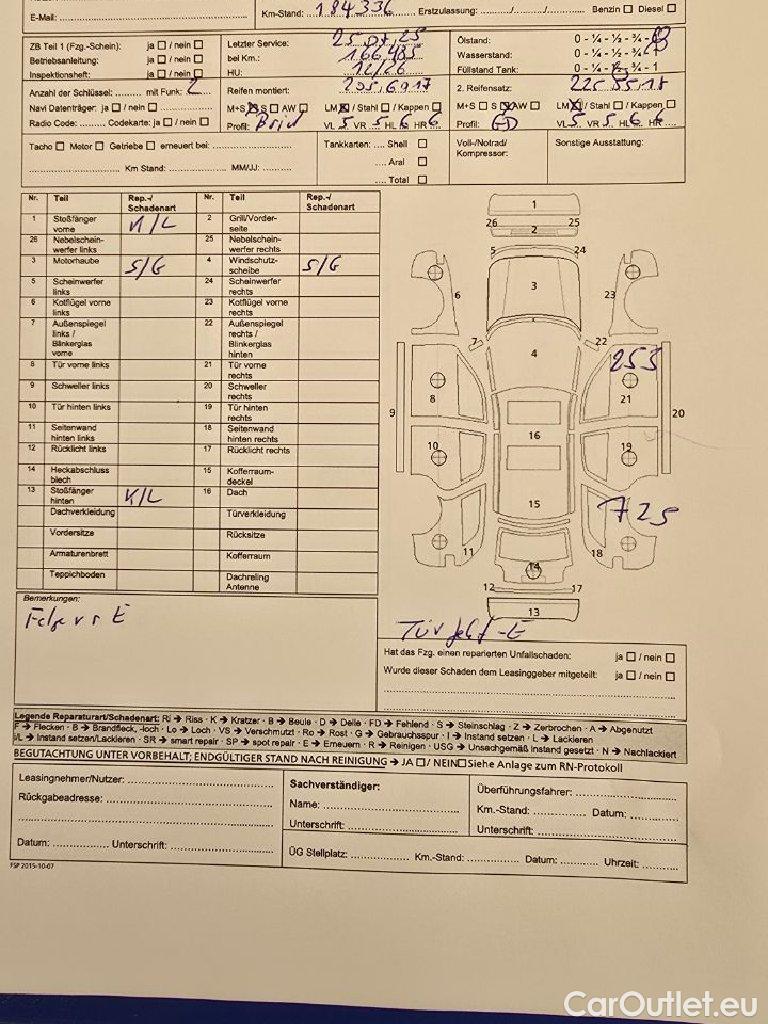 E-Mail: Km-Stand: 184 336 Erstzulassung: ......./......./....... Benzin ☐ Diesel ☐
ZB Teil 1 (Fzg.-Schein): ja ☐ / nein ☐
Betriebsanleitung: ja ☐ / nein ☐
Inspektionsheft: ja ☐ / nein ☐
Anzahl der Schlüssel: ........ mit Funk: 2
Navi Datenträger: ja ☐ / nein ☐
Radio Code: ........ Codekarte: ja ☐ / nein ☐
Letzter Service: 25.07.25
bei Km.: 166.485
HU: 12/26
Reifen montiert: 205.60 17
M+S ☒ S ☐ AW ☐ LM ☒ / Stahl ☐ / Kappen ☐
Profil: VL 5 VR 5 HL 6 HR 6
Ölstand: 0 - ¼ - ½ - ¾ - 1
Wasserstand: 0 - ¼ - ½ - ¾ - 1
Füllstand Tank: 0 - ¼ - ½ - ¾ - 1
2. Reifensatz: 225 55 18
M+S ☐ S ☒ AW ☐ LM ☒ / Stahl ☐ / Kappen ☐
Profil: VL 5 VR 5 HL 6 HR 6
Tacho ☐ Motor ☐ Getriebe ☐ erneuert bei:
Km Stand: IMM/JJ:
Tankkarten: .... Shell ☐
.... Aral ☐
.... Total ☐
Voll-/Notrad/
Kompressor:
Sonstige Ausstattung:
Nr. Teil Rep.-/ Schadenart Nr. Teil Rep.-/ Schadenart
1 Stoßfänger vorne K/L 2 Grill/Vorder- seite
26 Nebelschein- werfer links 25 Nebelschein- werfer rechts
3 Motorhaube S/G 4 Windschutz- scheibe S/G
5 Scheinwerfer links 24 Scheinwerfer rechts
6 Kotflügel vorne links 23 Kotflügel vorne rechts
7 Außenspiegel links / Blinkerglas vorne 22 Außenspiegel rechts / Blinkerglas hinten
8 Tür vorne links 21 Tür vorne rechts
9 Schweller links 20 Schweller rechts
10 Tür hinten links 19 Tür hinten rechts
11 Seitenwand hinten links 18 Seitenwand hinten rechts
12 Rücklicht links 17 Rücklicht rechts
14 Heckabschluss blech 15 Kofferraum- deckel
13 Stoßfänger hinten K/L 16 Dach
Dachverkleidung Türverkleidung
Vordersitze Rücksitze
Armaturenbrett Kofferraum
Teppichboden Dachreling Antenne
1
26 25
2
5 24
3
6 23
7 22
4
253
8 21
9 20
16
10 19
15
725
11 18
14
12 17
13
Bemerkungen:
Felge v r E
Hat das Fzg. einen reparierten Unfallschaden: ja ☐ / nein ☐
Wurde dieser Schaden dem Leasinggeber mitgeteilt: ja ☐ / nein ☐
Legende Reparaturart/Schadenart: Ri → Riss · K → Kratzer · B → Beule · D → Delle · FD → Fehlend · S → Steinschlag · Z → Zerbrochen · A → Abgenutzt
F → Flecken · B → Brandfleck, -loch · Lo → Loch · VS → Verschmutzt · Ro → Rost · G → Gebrauchsspur · I → Instand setzen · L → Lackieren
I/L → Instand setzen/Lackieren · SR → smart repair · SP → spot repair · E → Erneuern · R → Reinigen · USG → Unsachgemäß instand gesetzt · N → Nachlackiert
BEGUTACHTUNG UNTER VORBEHALT; ENDGÜLTIGER STAND NACH REINIGUNG → JA ☐ / NEIN ☐ Siehe Anlage zum RN-Protokoll
Leasingnehmer/Nutzer:
Rückgabeadresse:
Datum: Unterschrift:
Sachverständiger:
Name:
Unterschrift:
Überführungsfahrer:
Km.-Stand: Datum:
Unterschrift:
ÜG Stellplatz: Km.-Stand: Datum: Uhrzeit:
FSP 2015-10-07
CarOutlet.eu